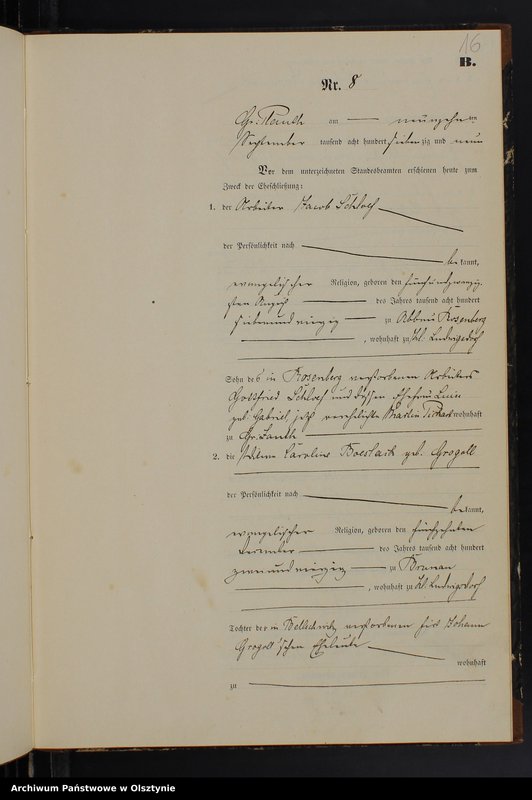 16
B.
Nr. 8
am neunzehn ten
September tausend acht hundert siebenzig und neun
Vor dem unterzeichneten Standesbeamten erschienen heute zum
Zweck der Eheschließung:
1. der Arbeiter Jacob
der Persönlichkeit nach
bekannt,
evangelischer Religion, geboren den fünfundzwanzig-
sten August des Jahres tausend acht hundert
siebenundvierzig zu Abbau Rosenberg
, wohnhaft zu Kl. Ludwigsdorf
Sohn des in Rosenberg verstorbenen Arbeiters
Gottfried und dessen Ehefrau
geb. Gabriel jetzt verehelichte Martin wohnhaft
zu Gr.
2. die Wittwe Caroline geb. Grogoll
der Persönlichkeit nach
bekannt,
evangelischer Religion, geboren den fünfzehnten
Dezember des Jahres tausend acht hundert
zweiundvierzig zu Brunau
, wohnhaft zu Kl. Ludwigsdorf
Tochter der in Bellschwitz verstorbenen Johann
Grogoll'schen Eheleute
wohnhaft
zu
Archiwum Państwowe w Olsztynie